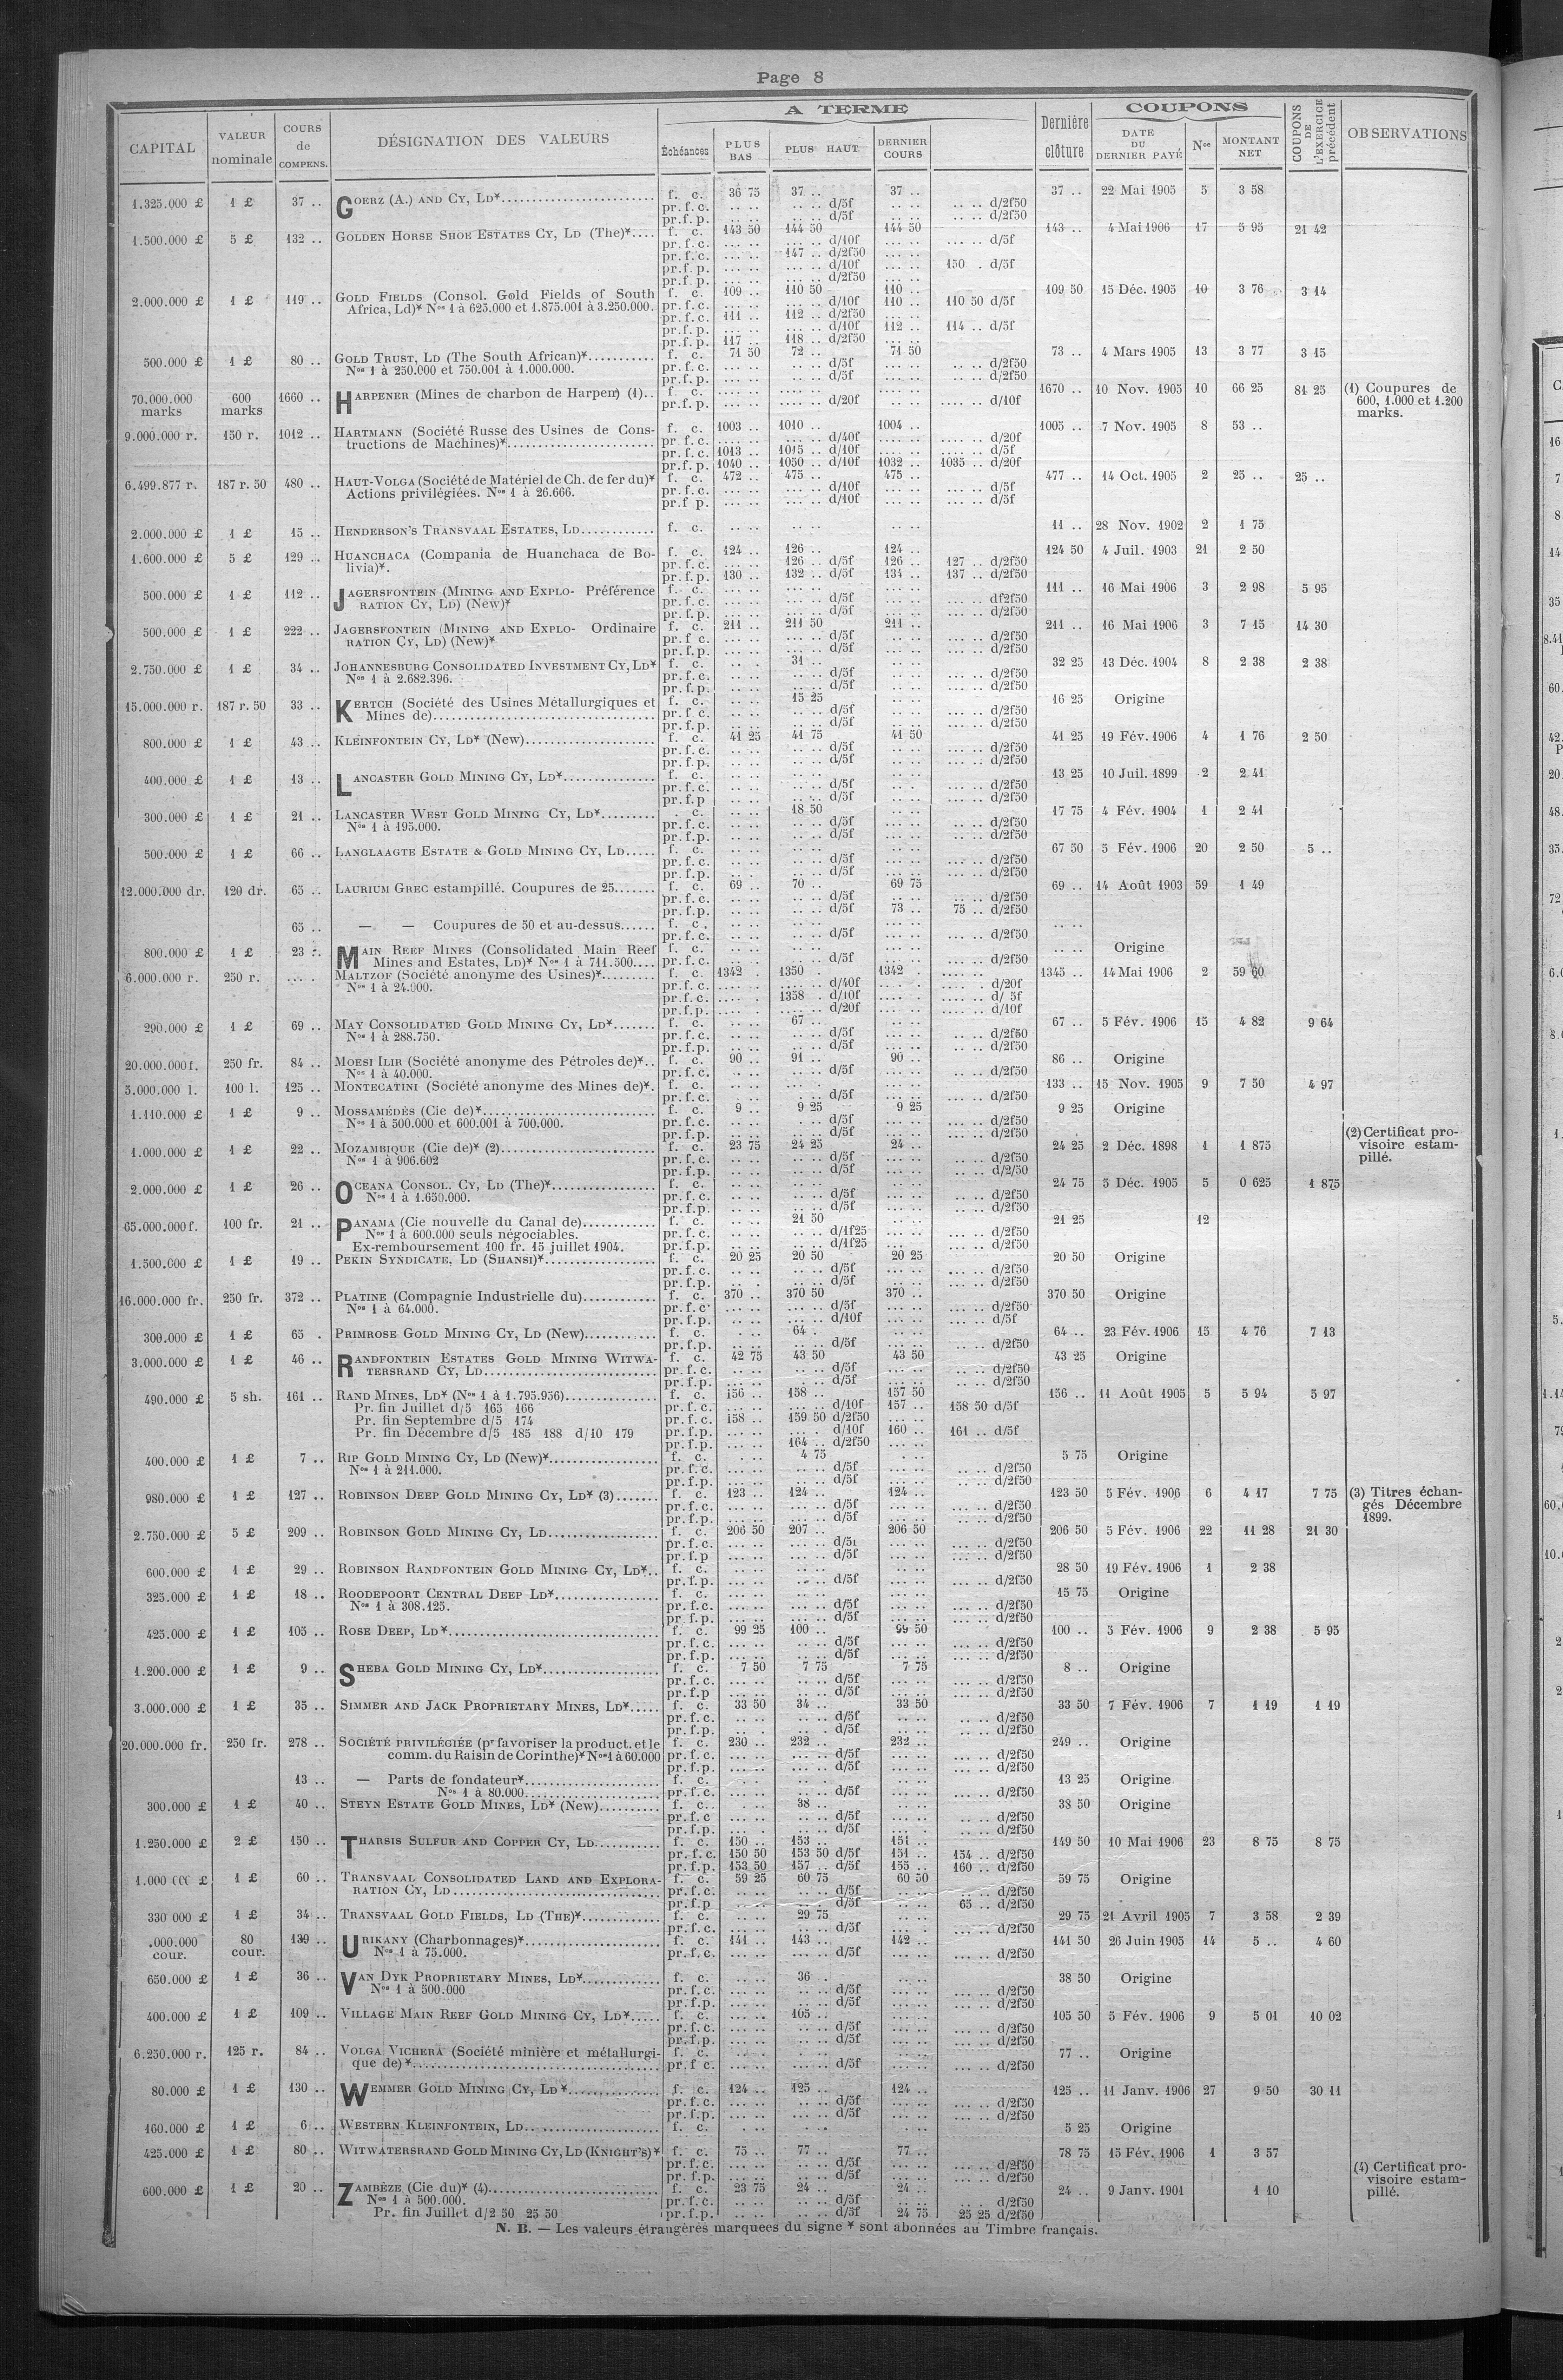 Page 8
CAPITAL
VALEUR nominale
COURS de COMPENS.
DÉSIGNATION DES VALEURS
A TERME
Échéances
PLUS BAS
PLUS HAUT
DERNIER COURS
Dernière clôture
COUPONS
DATE DU DERNIER PAYÉ
Nos
MONTANT NET
COUPONS DE L'EXERCICE précédent
OBSERVATIONS
1.325.000 £ 1 £ 37 .. GOERZ (A.) AND CY, LD* f. c. 36 75 37 .. 37 .. 37 .. 22 Mai 1905 5 3 58
pr. f. c. d/5f d/2f50
pr. f. p. d/5f d/2f50
1.500.000 £ 5 £ 132 .. GOLDEN HORSE SHOE ESTATES CY, LD (The)* f. c. 143 50 144 50 144 50 143 .. 4 Mai 1906 17 5 95 21 42
pr. f. c. d/10f d/5f
pr. f. c. 147 .. d/2f50
pr. f. p. d/10f 150 . d/5f
pr. f. p. d/2f50
2.000.000 £ 1 £ 119 .. GOLD FIELDS (Consol. Gold Fields of South f. c. 109 .. 110 50 110 .. 109 50 15 Déc. 1905 10 3 76 3 14
Africa, Ld)* Nos 1 à 625.000 et 1.875.001 à 3.250.000. pr. f. c. d/10f 110 .. 110 50 d/5f
pr. f. c. 111 .. 112 .. d/2f50
pr. f. p. d/10f 112 .. 114 .. d/5f
pr. f. p. 117 .. 118 .. d/2f50
500.000 £ 1 £ 80 .. GOLD TRUST, LD (The South African)* f. c. 71 50 72 .. 71 50 73 .. 4 Mars 1905 13 3 77 3 15
Nos 1 à 250.000 et 750.001 à 1.000.000. pr. f. c. d/5f d/2f50
pr. f. p. d/5f d/2f50
70.000.000 marks 600 marks 1660 .. HARPENER (Mines de charbon de Harpen) (1).. f. c. 1670 .. 10 Nov. 1905 10 66 25 81 25 (1) Coupures de 600, 1.000 et 1.200 marks.
pr. f. p. d/20f d/10f
9.000.000 r. 150 r. 1012 .. HARTMANN (Société Russe des Usines de Cons- f. c. 1003 .. 1010 .. 1004 .. 1005 .. 7 Nov. 1905 8 53 ..
tructions de Machines)* pr. f. c. d/40f d/20f
pr. f. c. 1013 .. 1015 .. d/10f d/5f
pr. f. p. 1040 .. 1050 .. d/10f 1032 .. 1035 .. d/20f
6.499.877 r. 187 r. 50 480 .. HAUT-VOLGA (Société de Matériel de Ch. de fer du)* f. c. 472 .. 475 .. 475 .. 477 .. 14 Oct. 1905 2 25 .. 25 ..
Actions privilégiées. Nos 1 à 26.666. pr. f. c. d/10f d/5f
pr. f p. d/10f d/5f
2.000.000 £ 1 £ 15 .. HENDERSON'S TRANSVAAL ESTATES, LD f. c. 11 .. 28 Nov. 1902 2 1 75
1.600.000 £ 5 £ 129 .. HUANCHACA (Compania de Huanchaca de Bo- f. c. 124 .. 126 .. 124 .. 124 50 4 Juil. 1903 21 2 50
livia)*. pr. f. c. 126 .. d/5f 126 .. 127 .. d/2f50
pr. f. p. 130 .. 132 .. d/5f 134 .. 137 .. d/2f50
500.000 £ 1 £ 112 .. JAGERSFONTEIN (MINING AND EXPLO- Préférence f. c. 111 .. 16 Mai 1906 3 2 98 5 95
RATION CY, LD) (New)* pr. f. c. d/5f df2f50
pr. f. p. d/5f d/2f50
500.000 £ 1 £ 222 .. JAGERSFONTEIN (MINING AND EXPLO- Ordinaire f. c. 211 .. 211 50 211 .. 211 .. 16 Mai 1906 3 7 15 14 30
RATION CY, LD) (New)* pr. f c. d/5f d/2f50
pr. f. p. d/5f d/2f50
2.750.000 £ 1 £ 34 .. JOHANNESBURG CONSOLIDATED INVESTMENT CY, LD* f. c. 31 .. 32 25 13 Déc. 1904 8 2 38 2 38
Nos 1 à 2.682.396. pr. f. c. d/5f d/2f50
pr. f. p. d/5f d/2f50
15.000.000 r. 187 r. 50 33 .. KERTCH (Société des Usines Métallurgiques et f. c. 15 25 16 25 Origine
Mines de) pr. f. c. d/5f d/2f50
pr. f. p. d/5f d/2f50
800.000 £ 1 £ 43 .. KLEINFONTEIN CY, LD* (New) f. c. 41 25 41 75 41 50 41 25 19 Fév. 1906 4 1 76 2 50
pr. f. c. d/5f d/2f50
pr. f. p. d/5f d/2f50
400.000 £ 1 £ 13 .. LANCASTER GOLD MINING CY, LD* f. c. 13 25 10 Juil. 1899 2 2 41
pr. f. c. d/5f d/2f50
pr. f. p d/5f d/2f50
300.000 £ 1 £ 21 .. LANCASTER WEST GOLD MINING CY, LD* . c. 18 50 17 75 4 Fév. 1904 1 2 41
Nos 1 à 195.000. pr. f. c. d/5f d/2f50
pr. f. p. d/5f d/2f50
500.000 £ 1 £ 66 .. LANGLAAGTE ESTATE & GOLD MINING CY, LD f. c. 67 50 5 Fév. 1906 20 2 50 5 ..
pr. f. c. d/5f d/2f50
pr. f. p. d/5f d/2f50
12.000.000 dr. 120 dr. 65 .. LAURIUM GREC estampillé. Coupures de 25 f. c. 69 .. 70 .. 69 75 69 .. 14 Août 1903 59 1 49
pr. f. c. d/5f d/2f50
pr. f. p. d/5f 73 .. 75 .. d/2f50
65 .. — — Coupures de 50 et au-dessus f. c.
pr. f. c. d/5f d/2f50
800.000 £ 1 £ 23 .. MAIN REEF MINES (Consolidated Main Reef f. c. Origine
Mines and Estates, LD)* Nos 1 à 711.500 pr. f. c. d/5f d/2f50
6.000.000 r. 250 r. MALTZOF (Société anonyme des Usines)* f. c. 1342 . 1350 . 1342 . 1345 .. 14 Mai 1906 2 59 60
Nos 1 à 24.000. pr. f. c. d/40f d/20f
pr. f. c. 1358 . d/10f d/ 5f
pr. f. p. d/20f d/10f
290.000 £ 1 £ 69 .. MAY CONSOLIDATED GOLD MINING CY, LD* f. c. 67 .. 67 .. 5 Fév. 1906 15 4 82 9 64
Nos 1 à 288.750. pr. f. c. d/5f d/2f50
pr. f. p. d/5f d/2f50
20.000.000 f. 250 fr. 84 .. MOESI ILIR (Société anonyme des Pétroles de)* f. c. 90 .. 91 .. 90 .. 86 .. Origine
Nos 1 à 40.000. pr. f. c. d/5f d/2f50
5.000.000 l. 100 l. 125 .. MONTECATINI (Société anonyme des Mines de)* f. c. 133 .. 15 Nov. 1905 9 7 50 4 97
pr. f. c. d/5f d/2f50
1.110.000 £ 1 £ 9 .. MOSSAMÉDÈS (Cie de)* f. c. 9 .. 9 25 9 25 9 25 Origine
Nos 1 à 500.000 et 600.001 à 700.000. pr. f. c. d/5f d/2f50
pr. f. p. d/5f d/2f50
1.000.000 £ 1 £ 22 .. MOZAMBIQUE (Cie de)* (2) f. c. 23 75 24 25 24 .. 24 25 2 Déc. 1898 1 1 875 (2) Certificat pro- visoire estam- pillé.
Nos 1 à 906.602 pr. f. c. d/5f d/2f50
pr. f. p. d/5f d/2/50
2.000.000 £ 1 £ 26 .. OCEANA CONSOL. CY, LD (The)* f. c. 24 75 5 Déc. 1905 5 0 625 1 875
Nos 1 à 1.650.000. pr. f. c. d/5f d/2f50
pr. f. p. d/5f d/2f50
65.000.000 f. 100 fr. 21 .. PANAMA (Cie nouvelle du Canal de) f. c. 21 50 21 25 12
Nos 1 à 600.000 seuls négociables. pr. f. c. d/1f25 d/2f50
Ex-remboursement 100 fr. 15 juillet 1904. pr. f. p. d/1f25 d/2f50
1.500.000 £ 1 £ 19 .. PEKIN SYNDICATE, LD (SHANSI)* f. c. 20 25 20 50 20 25 20 50 Origine
pr. f. c. d/5f d/2f50
pr. f. p. d/5f d/2f50
16.000.000 fr. 250 fr. 372 .. PLATINE (Compagnie Industrielle du) f. c. 370 .. 370 50 370 .. 370 50 Origine
Nos 1 à 64.000. pr. f. c d/5f d/2f50
pr. f. p. d/10f d/5f
300.000 £ 1 £ 65 . PRIMROSE GOLD MINING CY, LD (New) f. c. 64 . 64 .. 23 Fév. 1906 15 4 76 7 13
pr. f. p. d/5f d/2f50
3.000.000 £ 1 £ 46 .. RANDFONTEIN ESTATES GOLD MINING WITWA- f. c. 42 75 43 50 43 50 43 25 Origine
TERSRAND CY, LD pr. f. c. d/5f d/2f50
pr. f. p. d/5f d/2f50
490.000 £ 5 sh. 161 .. RAND MINES, LD* (Nos 1 à 1.795.956) f. c. 156 .. 158 .. 157 50 156 .. 11 Août 1905 5 5 94 5 97
Pr. fin Juillet d/5 165 166 pr. f. c. d/10f 157 .. 158 50 d/5f
Pr. fin Septembre d/5 174 pr. f. c. 158 .. 159 50 d/2f50
Pr. fin Décembre d/5 185 188 d/10 179 pr. f. p. d/10f 160 .. 161 .. d/5f
pr. f. p. 164 .. d/2f50
400.000 £ 1 £ 7 .. RIP GOLD MINING CY, LD (New)* f. c. 4 75 5 75 Origine
Nos 1 à 211.000. pr. f. c. d/5f d/2f50
pr. f. p. d/5f d/2f50
980.000 £ 1 £ 127 .. ROBINSON DEEP GOLD MINING CY, LD* (3) f. c. 123 .. 124 .. 124 .. 123 50 5 Fév. 1906 6 4 17 7 75 (3) Titres échan- gés Décembre 1899.
pr. f. c. d/5f d/2f50
pr. f. p. d/5f d/2f50
2.750.000 £ 5 £ 209 .. ROBINSON GOLD MINING CY, LD f. c. 206 50 207 .. 206 50 206 50 5 Fév. 1906 22 11 28 21 30
pr. f. c. d/5f d/2f50
pr. f. p d/5f d/2f50
600.000 £ 1 £ 29 .. ROBINSON RANDFONTEIN GOLD MINING CY, LD* f. c. 28 50 19 Fév. 1906 1 2 38
pr. f. p. d/5f d/2f50
325.000 £ 1 £ 18 .. ROODEPOORT CENTRAL DEEP LD* f. c. 15 75 Origine
Nos 1 à 308.125. pr. f. c. d/5f d/2f50
pr. f. p. d/5f d/2f50
425.000 £ 1 £ 105 .. ROSE DEEP, LD* f. c. 99 25 100 .. 99 50 100 .. 5 Fév. 1906 9 2 38 5 95
pr. f. c. d/5f d/2f50
pr. f. p. d/5f d/2f50
1.200.000 £ 1 £ 9 .. SHEBA GOLD MINING CY, LD* f. c. 7 50 7 75 7 75 8 .. Origine
pr. f. c. d/5f d/2f50
pr. f. p d/5f d/2f50
3.000.000 £ 1 £ 35 .. SIMMER AND JACK PROPRIETARY MINES, LD* f. c. 33 50 34 .. 33 50 33 50 7 Fév. 1906 7 1 19 1 19
pr. f. c. d/5f d/2f50
pr. f. p. d/5f d/2f50
20.000.000 fr. 250 fr. 278 .. SOCIÉTÉ PRIVILÉGIÉE (pr favoriser la product. et le f. c. 230 .. 232 .. 232 .. 249 .. Origine
comm. du Raisin de Corinthe)* Nos 1 à 60.000 pr. f. c. d/5f d/2f50
pr. f. p. d/5f d/2f50
13 .. — Parts de fondateur* f. c. 13 25 Origine
Nos 1 à 80.000 pr. f. c. d/5f d/2f50
300.000 £ 1 £ 40 .. STEYN ESTATE GOLD MINES, LD* (New) f. c. 38 .. 38 50 Origine
pr. f. c d/5f d/2f50
pr. f. p. d/5f d/2f50
1.250.000 £ 2 £ 150 .. THARSIS SULFUR AND COPPER CY, LD f. c. 150 .. 153 .. 151 .. 149 50 10 Mai 1906 23 8 75 8 75
pr. f. c. 150 50 153 50 d/5f 151 .. 154 .. d/2f50
pr. f. p. 153 50 157 .. d/5f 155 .. 160 .. d/2f50
1.000 000 £ 1 £ 60 .. TRANSVAAL CONSOLIDATED LAND AND EXPLORA- f. c. 59 25 60 75 60 50 59 75 Origine
RATION CY, LD pr. f. c. d/5f d/2f50
pr. f. p d/5f 65 .. d/2f50
330 000 £ 1 £ 34 .. TRANSVAAL GOLD FIELDS, LD (THE)* f. c. 29 75 29 75 21 Avril 1905 7 3 58 2 39
pr. f. c. d/5f d/2f50
.000.000 cour. 80 cour. 139 .. URIKANY (Charbonnages)* f. c. 141 .. 143 .. 142 .. 141 50 26 Juin 1905 14 5 .. 4 60
Nos 1 à 75.000. pr. f. c. d/5f d/2f50
650.000 £ 1 £ 36 .. VAN DYK PROPRIETARY MINES, LD* f. c. 36 . 38 50 Origine
Nos 1 à 500.000 pr. f. c. d/5f d/2f50
pr. f. p. d/5f d/2f50
400.000 £ 1 £ 109 .. VILLAGE MAIN REEF GOLD MINING CY, LD* f. c. 105 .. 105 50 5 Fév. 1906 9 5 01 10 02
pr. f. c. d/5f d/2f50
pr. f. p. d/5f d/2f50
6.250.000 r. 125 r. 84 .. VOLGA VICHERA (Société minière et métallurgi- f. c. 77 .. Origine
que de)* pr. f c. d/5f d/2f50
80.000 £ 1 £ 130 .. WEMMER GOLD MINING CY, LD* f. c. 124 .. 125 .. 124 .. 125 .. 11 Janv. 1906 27 9 50 30 11
pr. f. c. d/5f d/2f50
pr. f. p. d/5f d/2f50
160.000 £ 1 £ 6 .. WESTERN KLEINFONTEIN, LD f. c. 5 25 Origine
425.000 £ 1 £ 80 .. WITWATERSRAND GOLD MINING CY, LD (KNIGHT'S)* f. c. 75 .. 77 .. 77 .. 78 75 15 Fév. 1906 1 3 57
pr. f. c. d/5f d/2f50
pr. f. p. d/5f d/2f50
600.000 £ 1 £ 20 .. ZAMBÈZE (Cie du)* (4) f. c. 23 75 24 .. 24 .. 24 .. 9 Janv. 1901 1 10 (4) Certificat pro- visoire estam- pillé.
Nos 1 à 500.000. pr. f. c. d/5f d/2f50
Pr. fin Juillet d/2 50 25 50 pr. f. p. d/5f 24 75 25 25 d/2f50
N. B. — Les valeurs étrangères marquées du signe * sont abonnées au Timbre français.